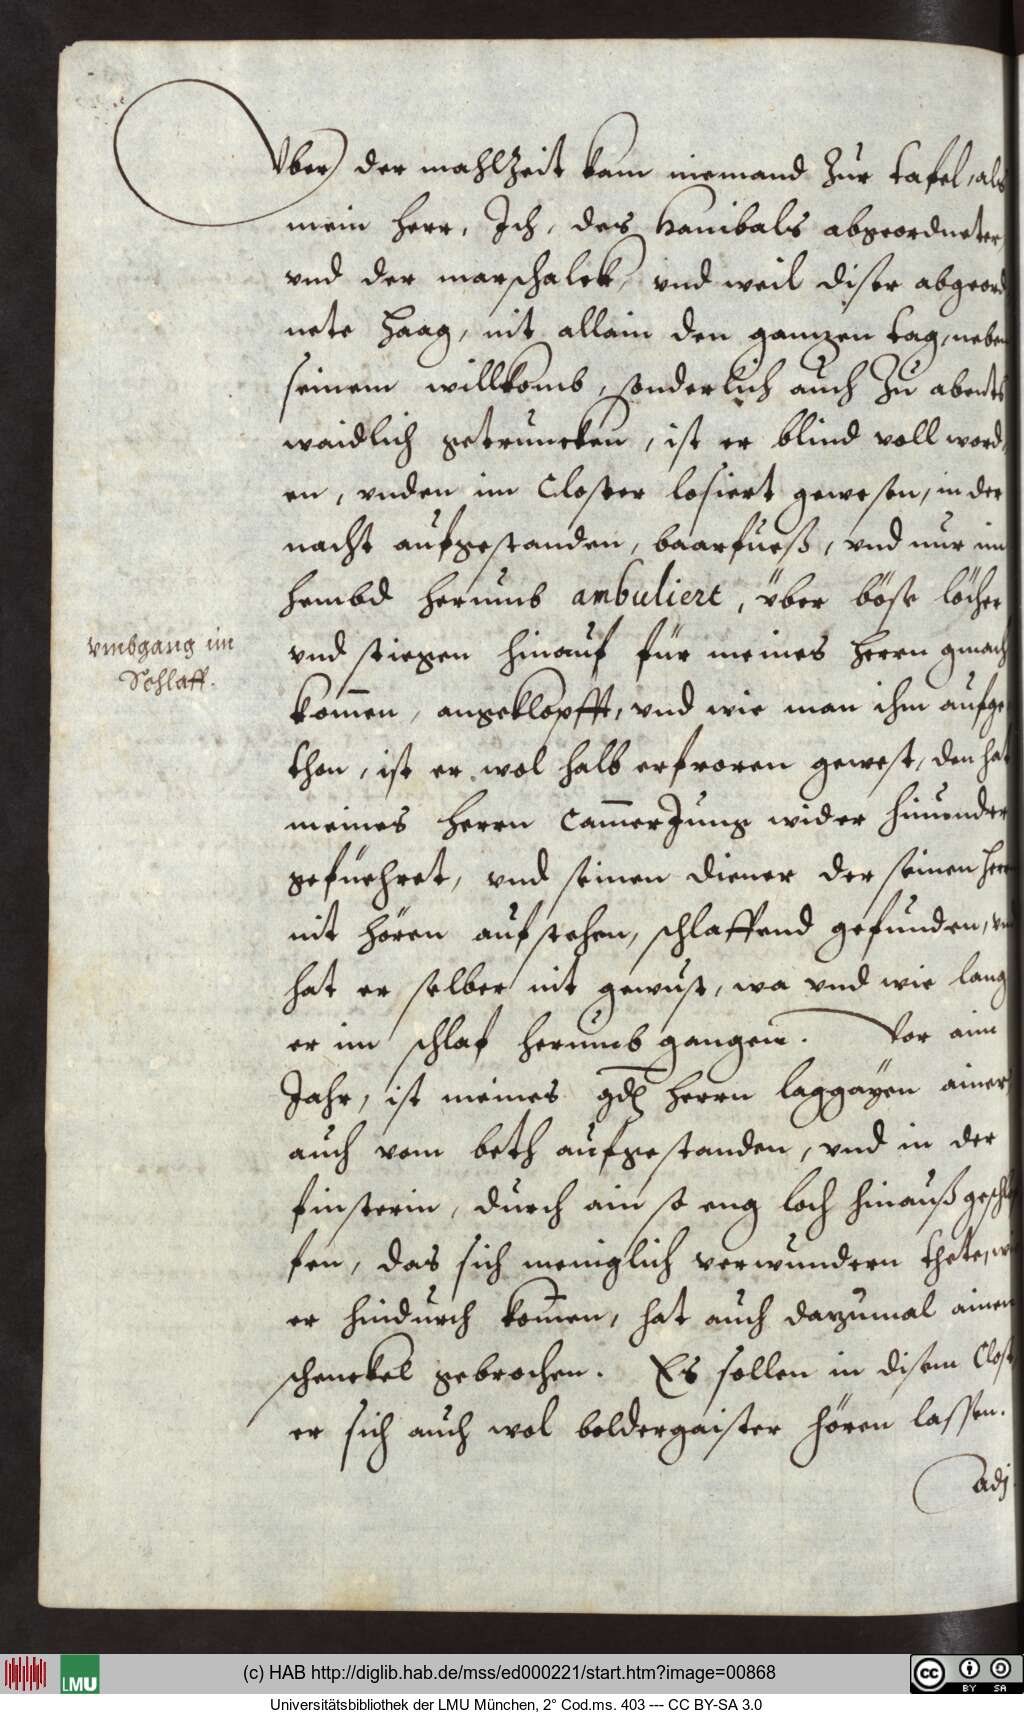 Vber der mahlzeit kam niemand zur tafel, als
mein herr, Ich, des Hanibals abgeordneter,
vnd der marschalck, vnd weil diser abgeord
nete Haag, nit allain den ganzen tag, neben
seinem willkomb, sonderlich auch zu abents
waidlich getruncken, ist er blind voll word
en, vnden im Closter losiert gewesen, in der
nacht aufgestanden, baarfueß, vnd nur im
hembd herumb ambuliert, über böse löcher
vmbgang im
Schlaff.
vnd stiegen hinauf für meines herrn gmach
kom̄en, angeklopfft, vnd wie man ihm aufge
thon, ist er wol halb erfroren gewest, den hat
meines herrn Cam̄erJung wider hinunder
gefuehret, vnd seinen diener der seinen herrn
nit hören aufstehen, schlaffend gefunden, vnd
hat er selber nit gewust, wa vnd wie lang
er im schlaf herumb gangen. Vor aim
Jahr, ist meines gdl herrn laggäyen ainer,
auch vom beth aufgestanden, vnd in der
finsterin, durch ain so eng loch hinauß geschl
fen, das sich meniglich verwundern thete, wie
er hindurch kom̄en, hat auch dazumal ainen
schenckel gebrochen. Es sollen in disem Clost
er sich auch wol boldergaister hören lassen.
adj
(c) HAB http://diglib.hab.de/mss/ed000221/start.htm?image=00868
LMU
cc BY SA
Universitätsbibliothek der LMU München, 2° Cod.ms. 403 --- CC BY-SA 3.0